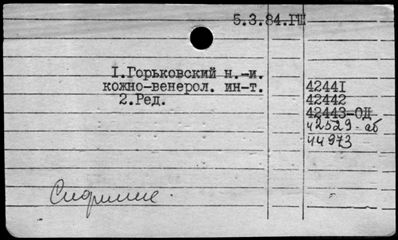 5.3.84.ГШ
I.Горьковский н.-и.
кожно-венерол. ин-т.
2.Ред.
4244I
42442
42443-ОД
42529-аб
44973
Сифилис.